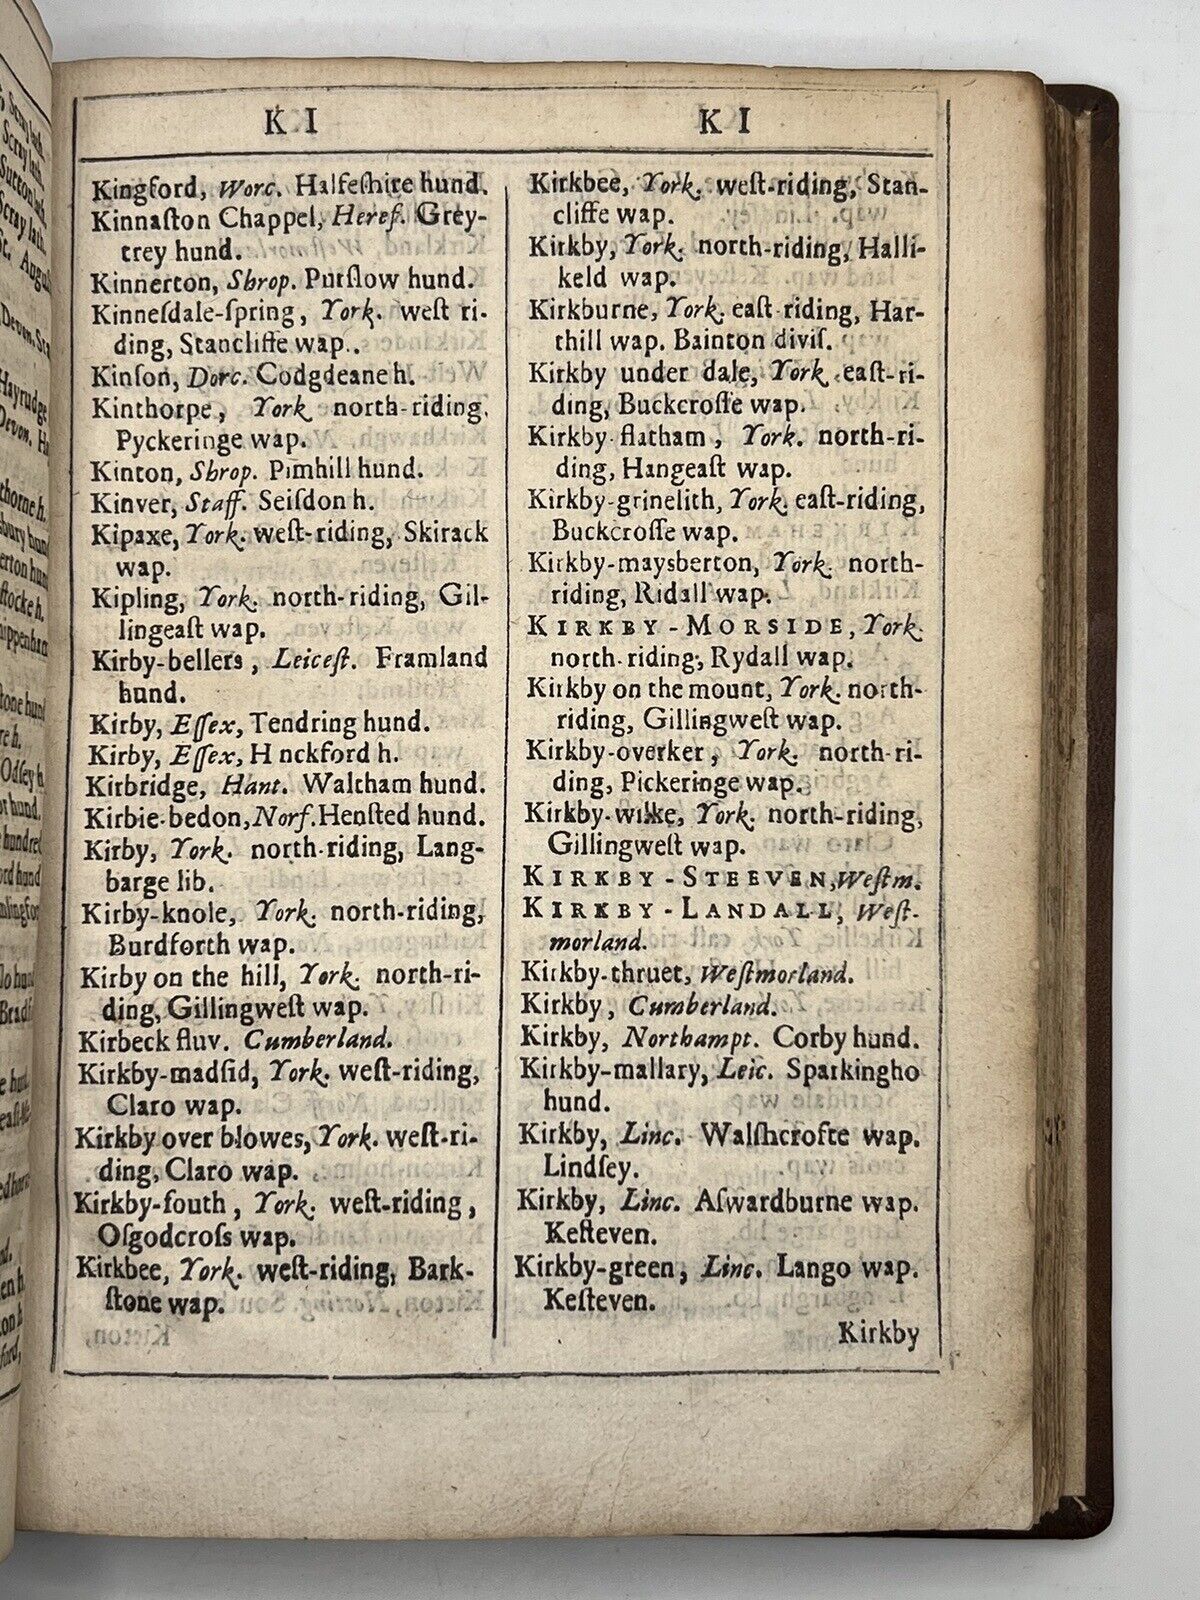 K I
Kingford, Worc. Halfeſhire hund.
Kinnaſton Chappel, Heref. Grey-
trey hund.
Kinnerton, Shrop. Purſlow hund.
Kinneſdale-ſpring, York. weſt ri-
ding, Stancliffe wap.
Kinſon, Dorc. Codgdeane h.
Kinthorpe, York north-riding,
Pyckeringe wap.
Kinton, Shrop. Pimhill hund.
Kinver, Staff. Seiſdon h.
Kipaxe, York. weſt-riding, Skirack
wap.
Kipling, York. north-riding, Gil-
lingeaſt wap.
Kirby-bellers, Leiceſt. Framland
hund.
Kirby, Eſſex, Tendring hund.
Kirby, Eſſex, H nckford h.
Kirbridge, Hant. Waltham hund.
Kirbie-bedon, Norf. Henſted hund.
Kirby, York. north-riding, Lang-
barge lib.
Kirby-knole, York. north-riding,
Burdforth wap.
Kirby on the hill, York. north-ri-
ding, Gillingweſt wap.
Kirbeck fluv. Cumberland.
Kirkby-madſid, York. weſt-riding,
Claro wap.
Kirkby over blowes, York. weſt-ri-
ding, Claro wap.
Kirkby-ſouth, York. weſt-riding,
Oſgodcroſs wap.
Kirkbee, York. weſt-riding, Bark-
ſtone wap.
K I
Kirkbee, York. weſt-riding, Stan-
cliffe wap.
Kirkby, York. north-riding, Halli-
keld wap.
Kirkburne, York. eaſt-riding, Har-
thill wap. Bainton diviſ.
Kirkby under dale, York. eaſt-ri-
ding, Buckcroſſe wap.
Kirkby-flatham, York. north-ri-
ding, Hangeaſt wap.
Kirkby-grinelith, York. eaſt-riding,
Buckcroſſe wap.
Kirkby-maysberton, York. north-
riding, Ridall wap.
KIRKBY-MORSIDE, York.
north-riding, Rydall wap.
Kirkby on the mount, York. north-
riding, Gillingweſt wap.
Kirkby-overker, York. north-ri-
ding, Pickeringe wap.
Kirkby-wiſke, York. north-riding,
Gillingweſt wap.
KIRKBY-STEEVEN, Weſtm.
KIRKBY-LANDALL, Weſt-
morland.
Kirkby-thruet, Weſtmorland.
Kirkby, Cumberland.
Kirkby, Northampt. Corby hund.
Kirkby-mallary, Leic. Sparkingho
hund.
Kirkby, Linc. Walſhcrofte wap.
Lindſey.
Kirkby, Linc. Aſwardburne wap.
Keſteven.
Kirkby-green, Linc. Lango wap.
Keſteven.
Kirkby